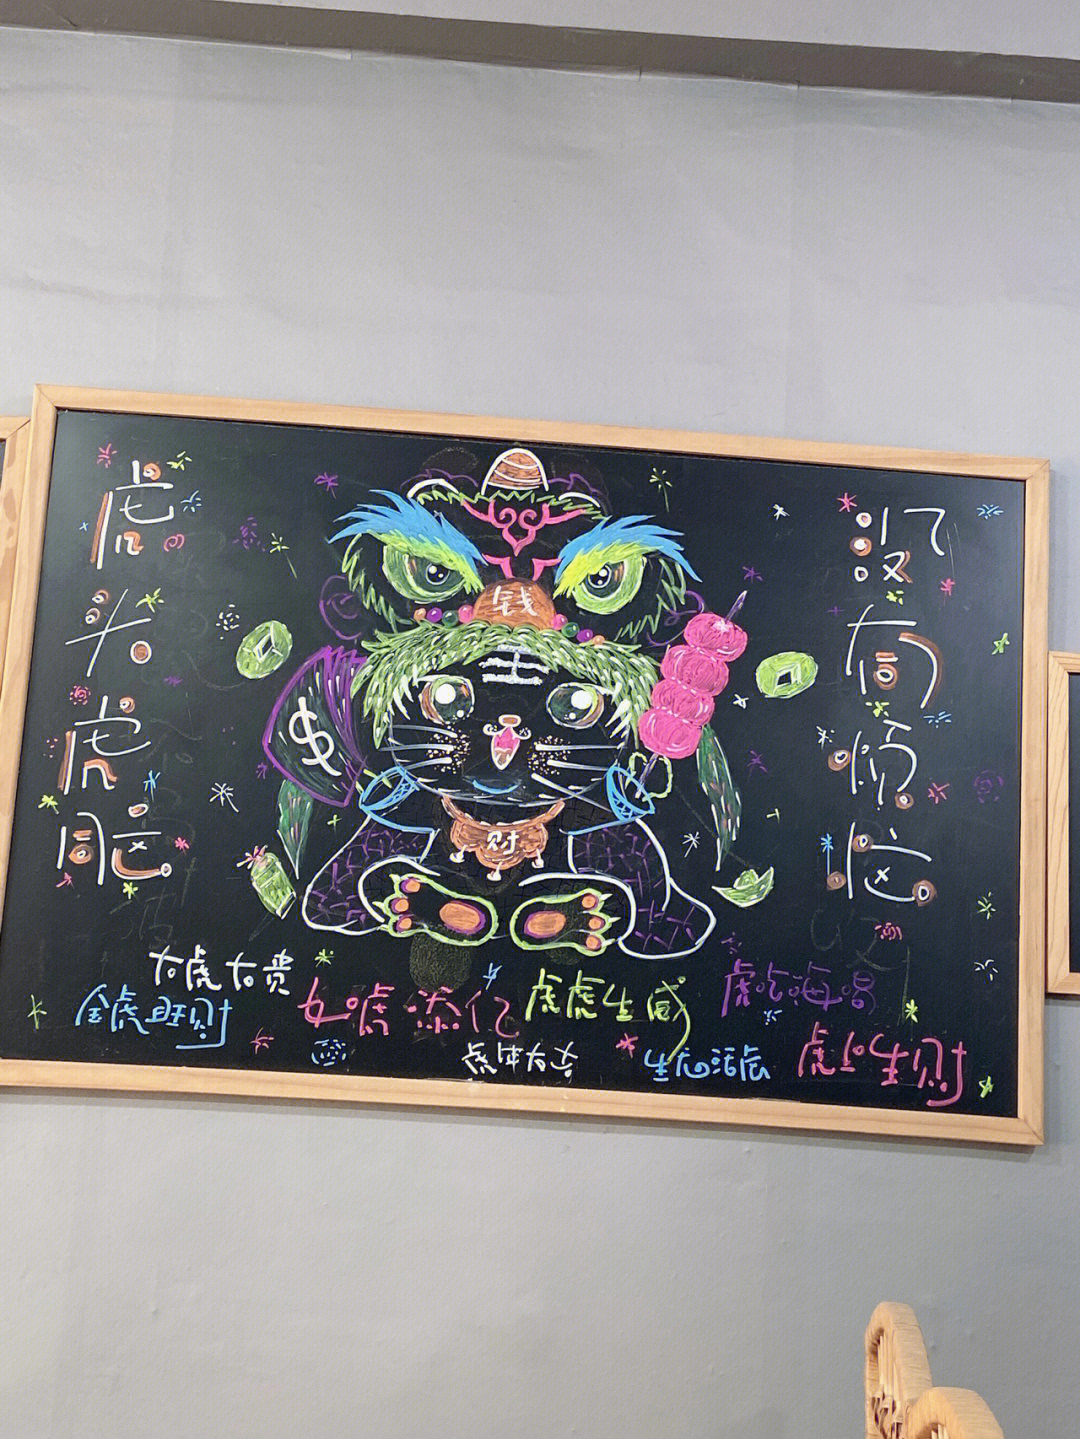 虎头虎脑
没有烦恼
钱
王
$
财
大虎大贵
金虎旺财
如虎添亿
虎虎生威
虎吃海喝
虎年大吉
生龙活虎